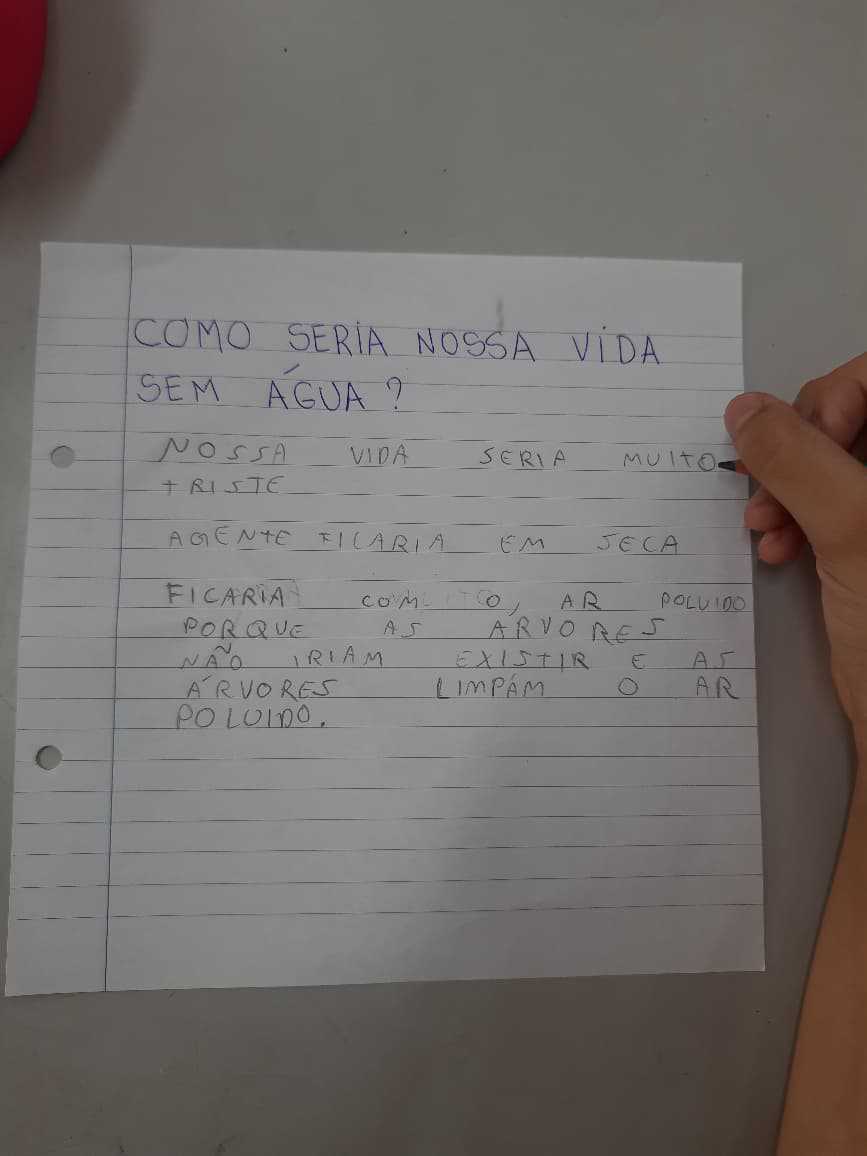 COMO SERIA NOSSA VIDA
SEM ÁGUA?
NOSSA VIDA SERIA MUITO
TRISTE
AGENTE FICARIA EM SECA
FICARIA COM O, AR POLUIDO
PORQUE AS ARVORES
NÃO IRIAM EXISTIR E AS
ÁRVORES LIMPÁM O AR
POLUIDO.